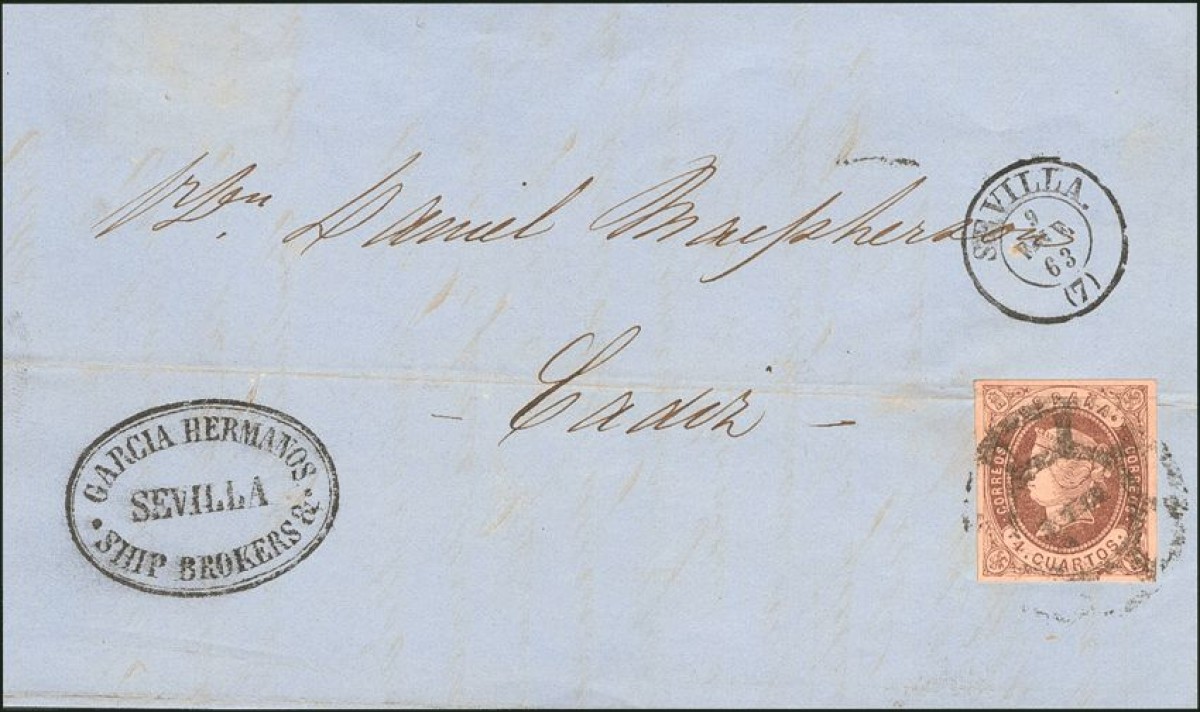 Daniel Macpherson
- Cadiz -
SEVILLA.
9
ENE
63
(7)
GARCIA HERMANOS
SEVILLA
SHIP BROKERS &
ESPAÑA
CORREOS
CORREOS
4 CUARTOS.